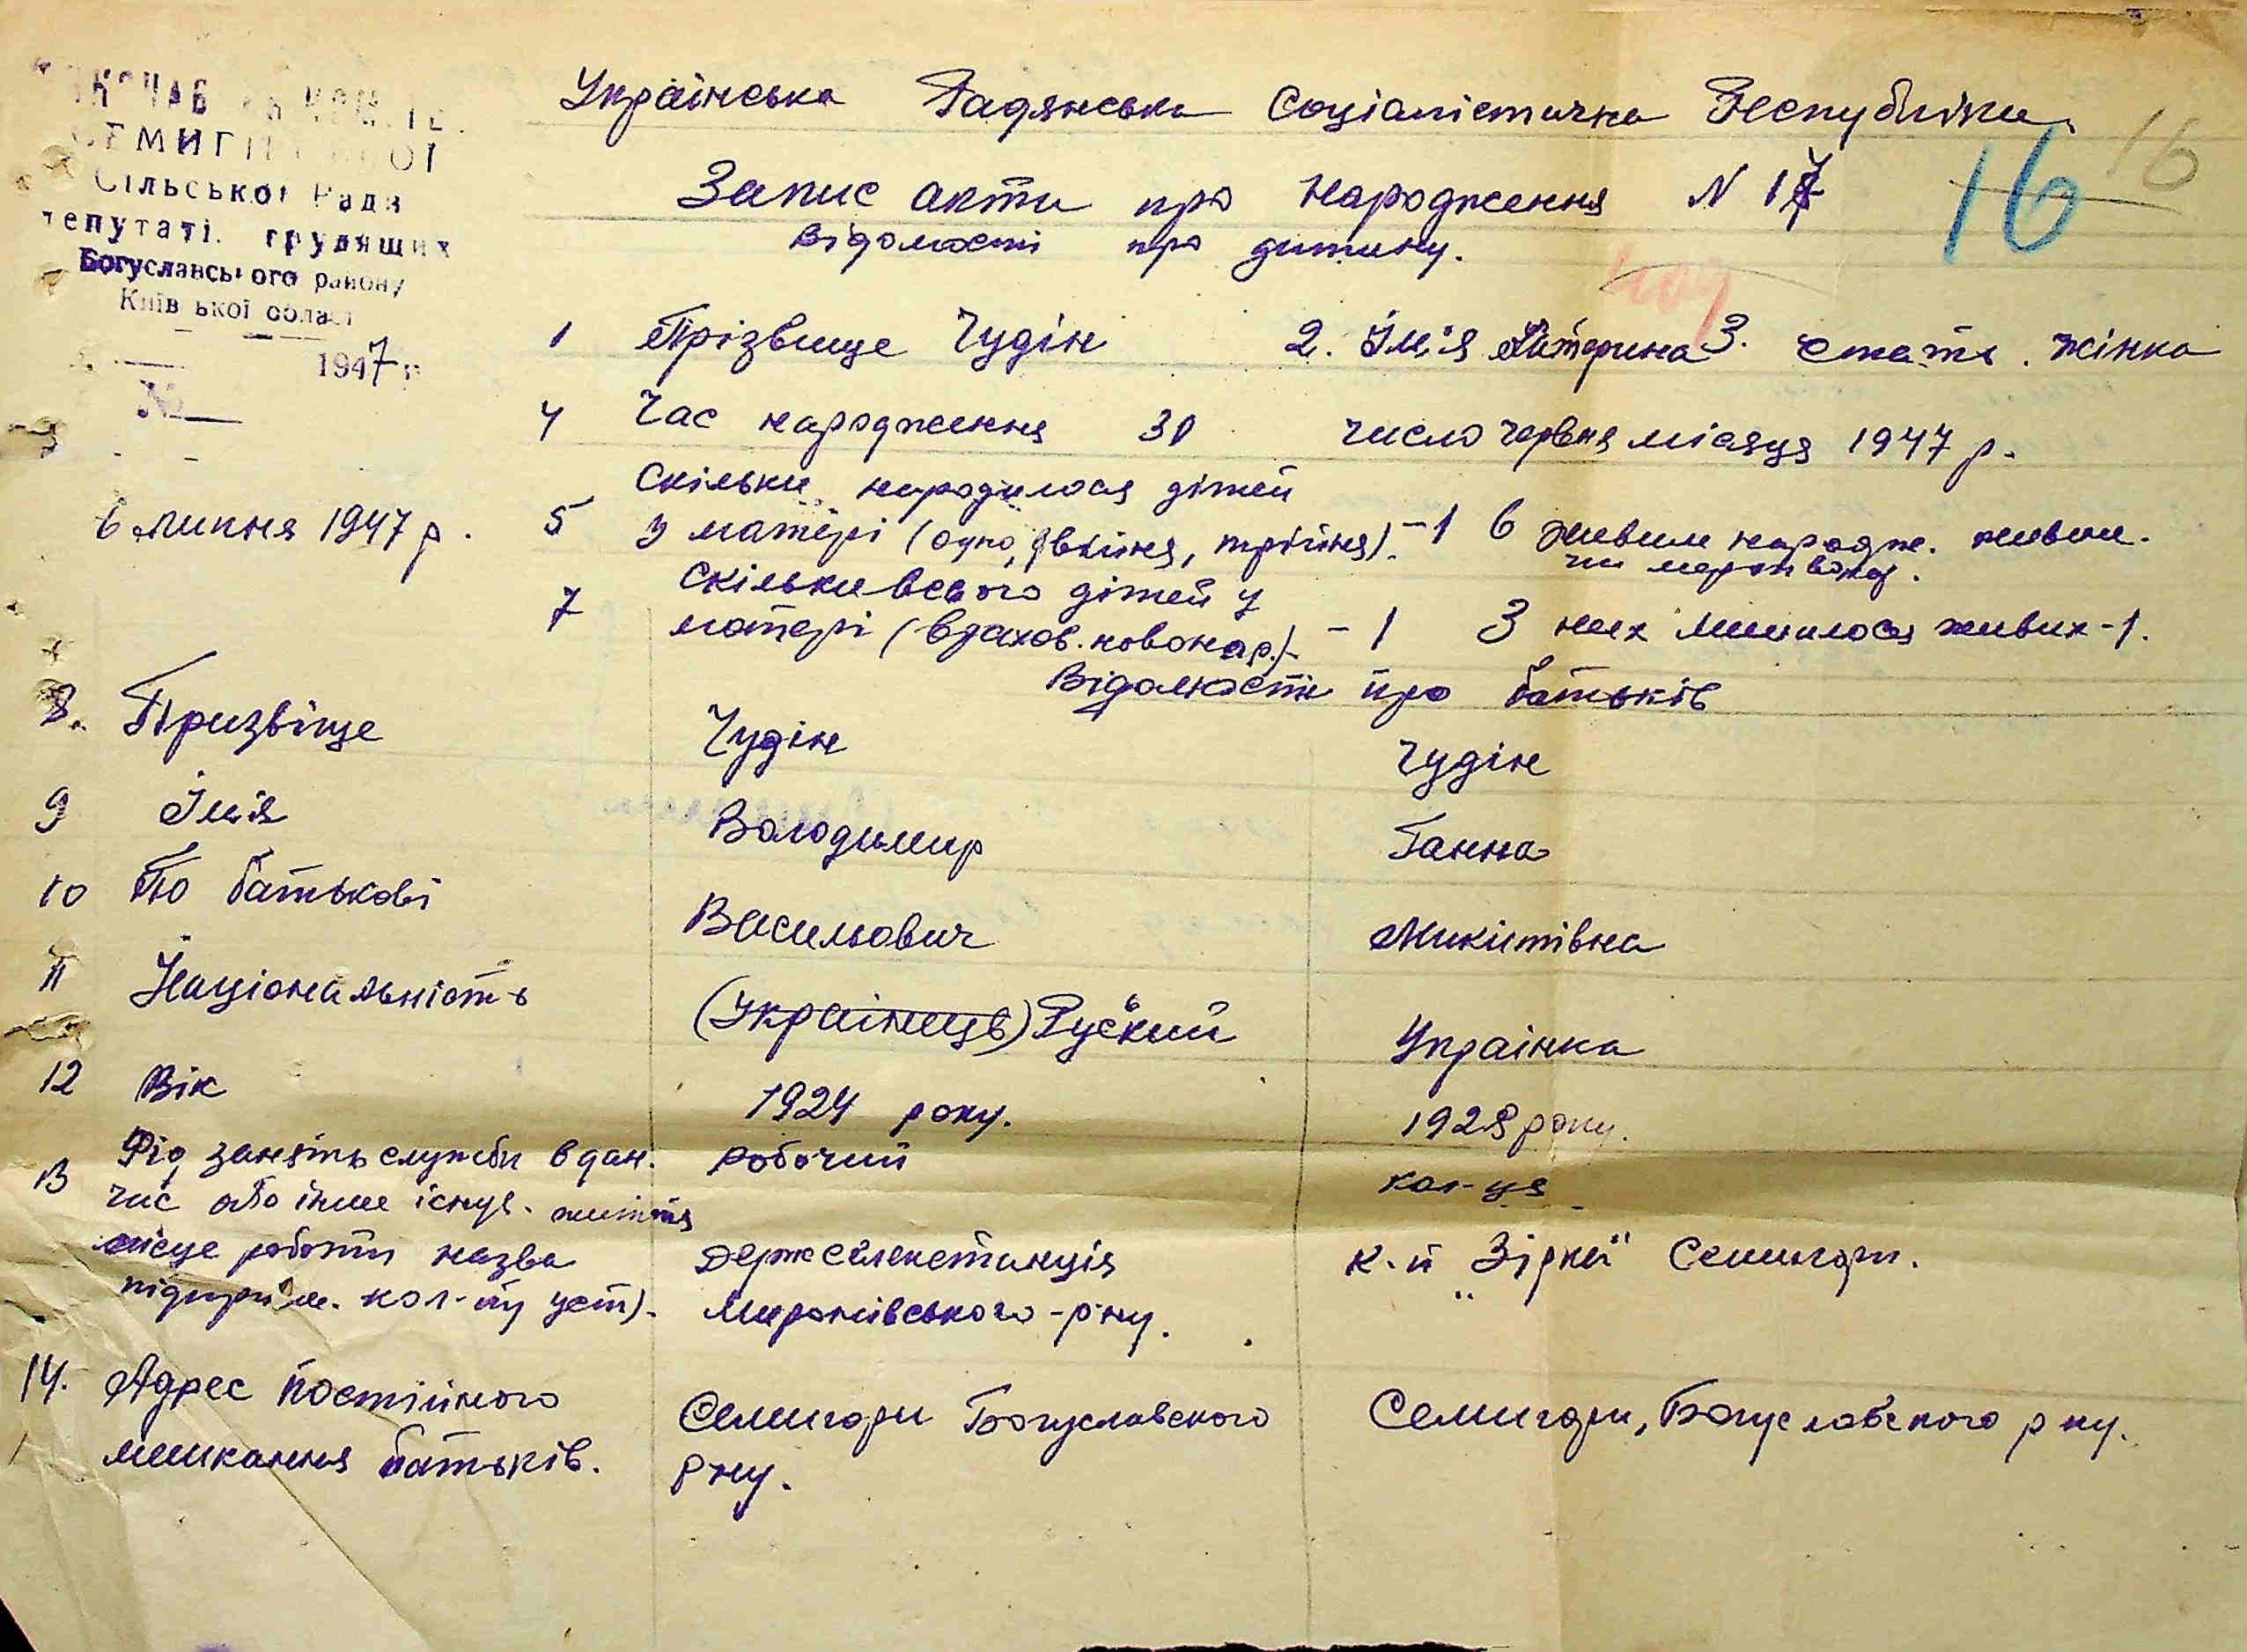 Українська Радянська Соціалістична Республіка
16 16
Запис акти про народження N 17
Відомості про дитину.
СЕМИГІ
Сільської Ради
депутаті. трудящих
Богуславсь ого району
Київ ької област
1947 р
№
1 Прізвище Чудін 2. Ім'я Катерина 3. стать. жінка
4 Час народження 30 число червня місяця 1947 р.
6 липня 1947 р.
Скільки народилося дітей
5 у матері (одно, двійня, трійня). -1 6 живим народж. живим.
чи мертвонар.
Скільки всього дітей у
7 матері (вдахов. новонар.)- - 1 З них лишилося живих - 1.
Відомости про батьків
8. Призвіще Чудін Чудін
9 Імія Володимир Ганна
10 По батькові Васильович Микитівна
11 Національність (Українець) Руський Українка
12 Вік 1924 року. 1928 року.
13 Рід занять служби в дан. робочий кол-ця
час або інше існув. життя
місце роботи назва Держселекстанція к-п "Зірка" Семигори.
підприєм. кол-пу уст). Миронівського - р-ну.
14. Адрес постійного Семигори Богуславского Семигори, Богуславского р ну.
мешкання батьків. р ну.